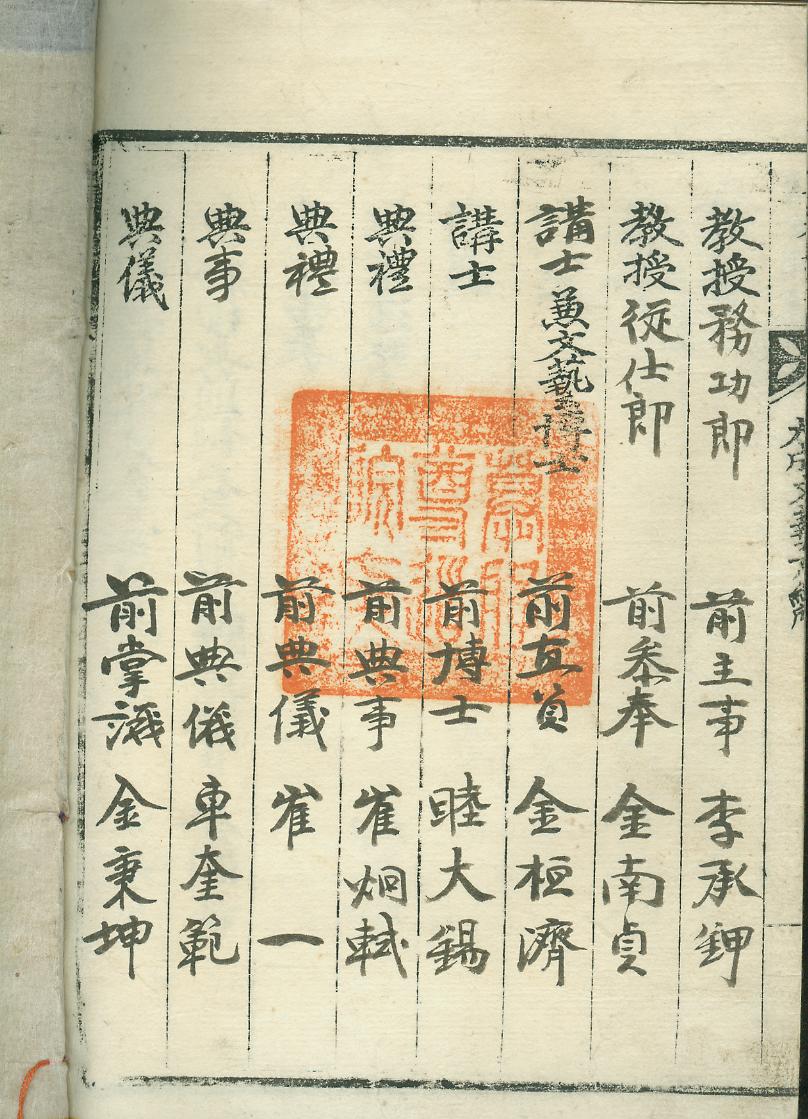 教授務功郎 前主事 李承鉀
教授從仕郎 前叅奉 金南貞
講士兼文藝博士 前直員 金桓濟
講士 前博士 睦大錫
典禮 前典事 崔炯軾
典禮 前典儀 崔一
典事 前典儀 車奎範
典儀 前掌議 金秉坤